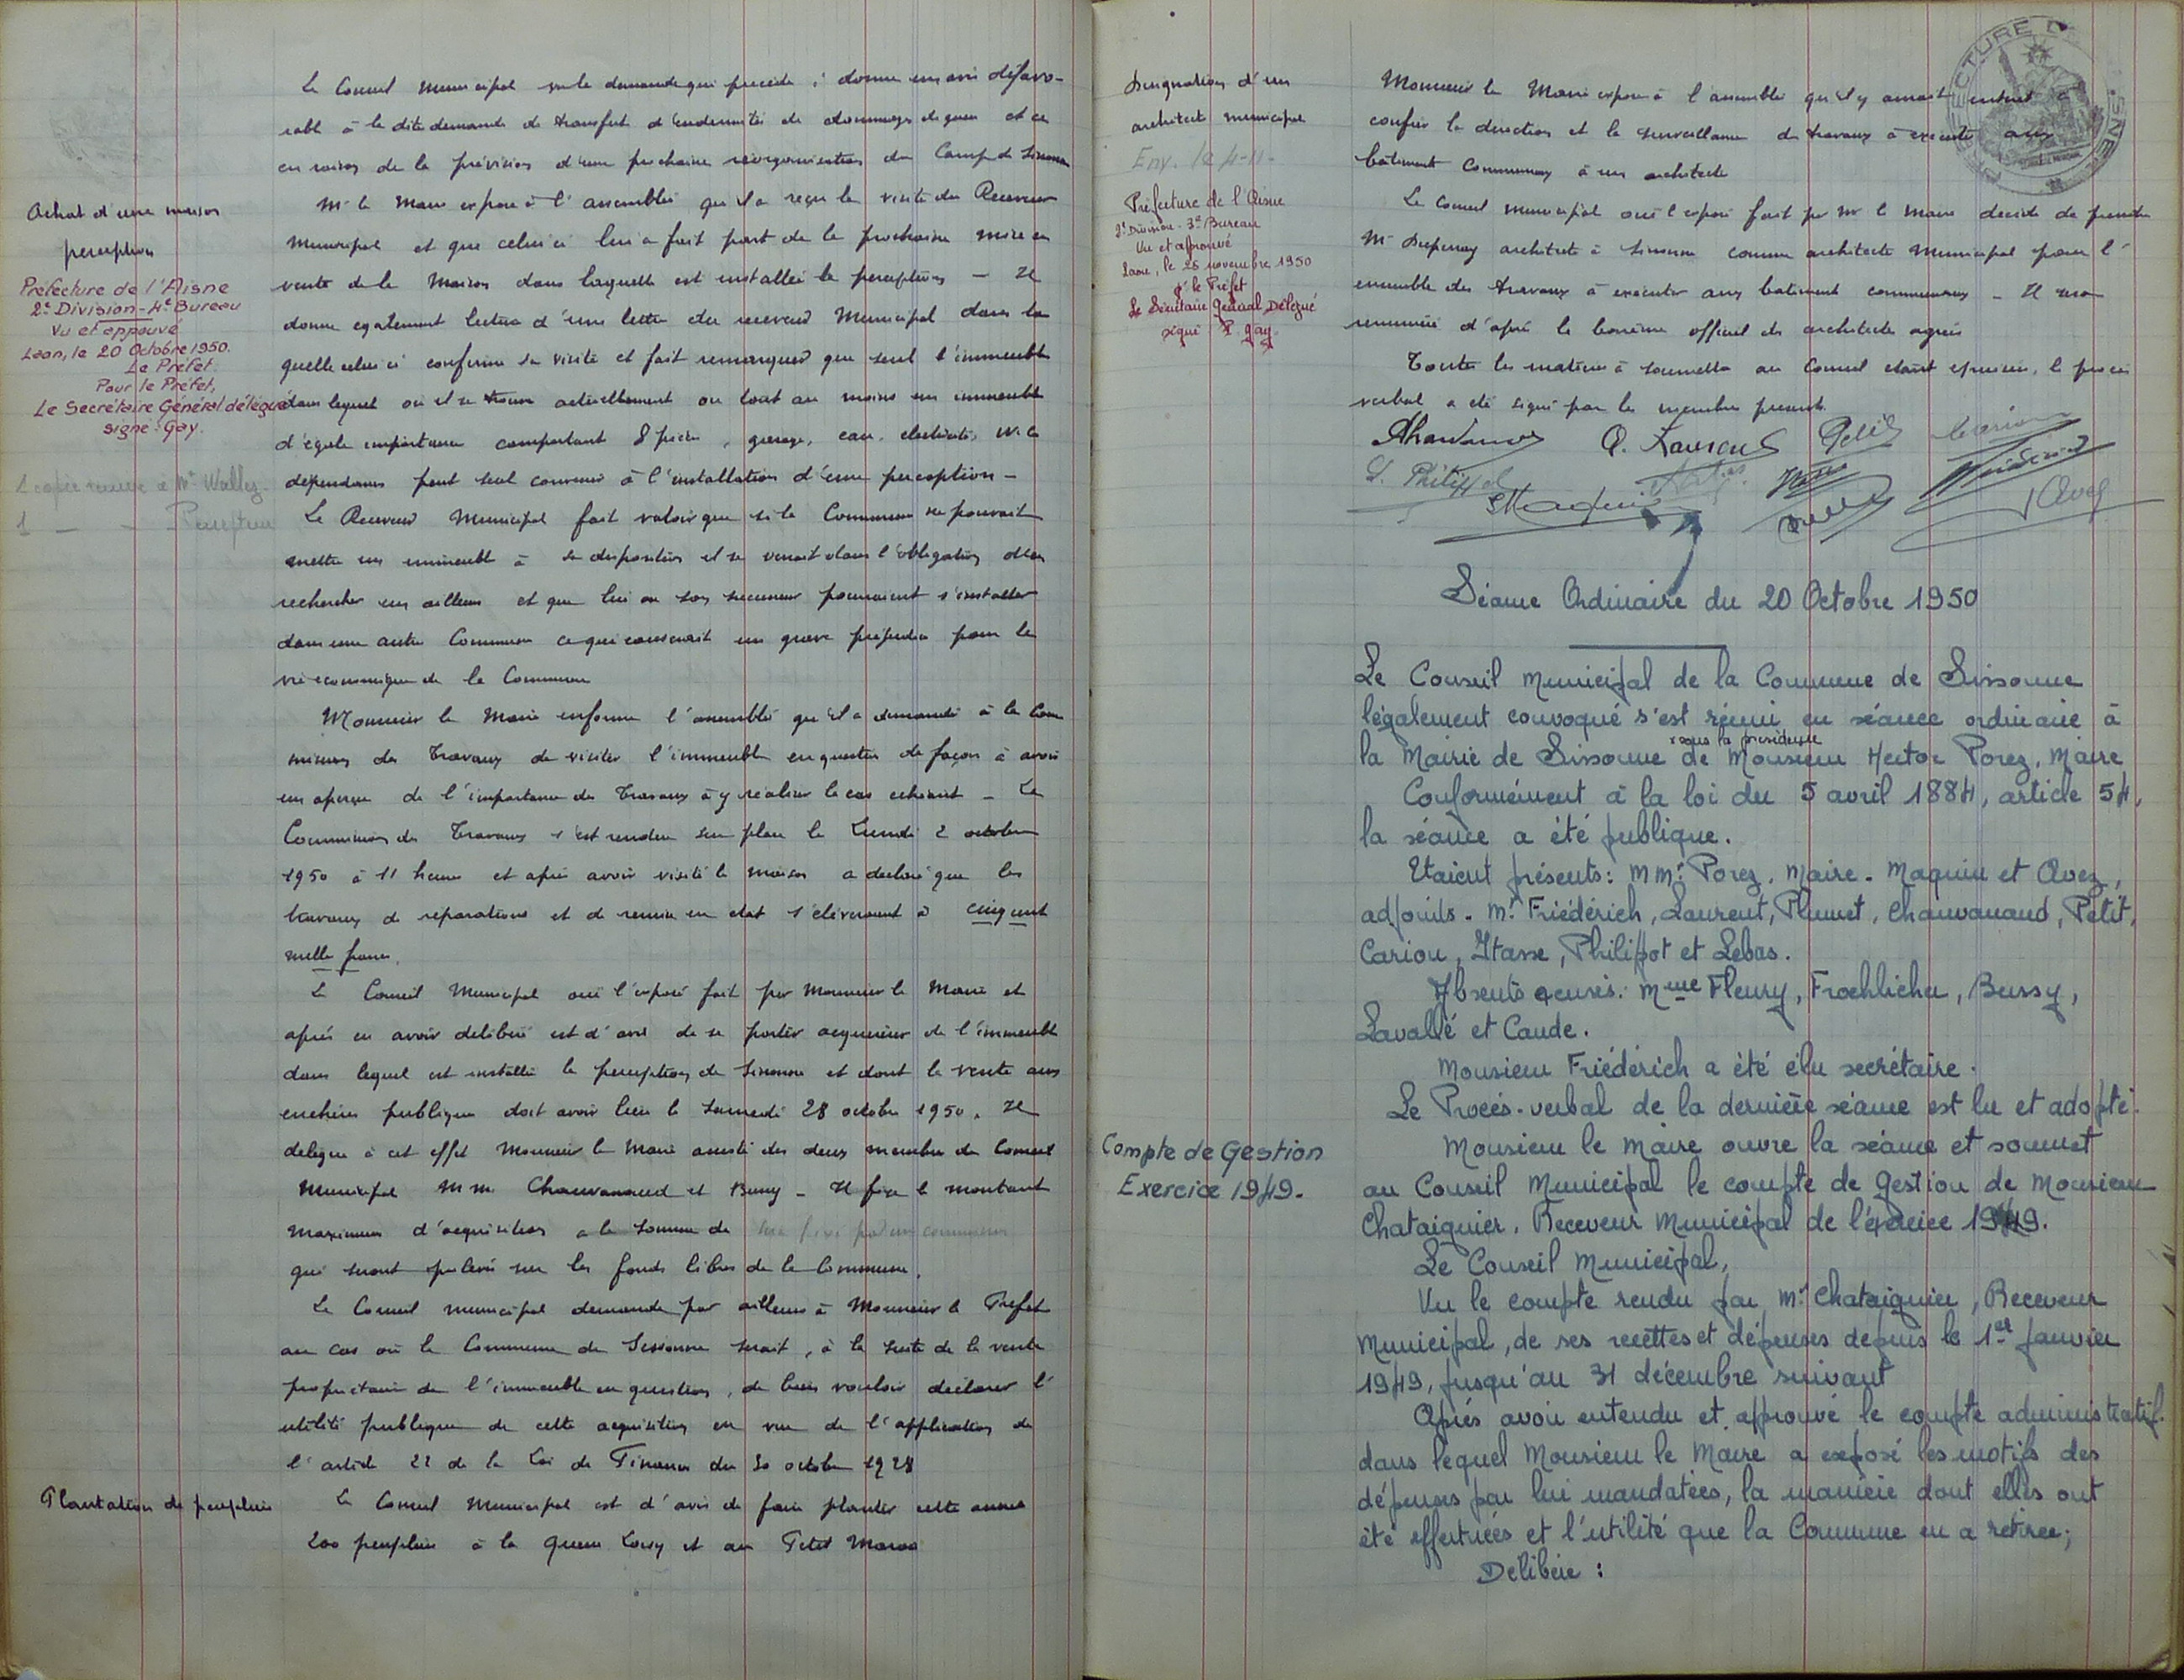 Le Conseil Municipal sur la demande qui précède : donne un avis défavo-
rable à la dite demande de transfert d'indemnités de dommages de guerre et ce
en raison de la prévision d'une prochaine réorganisation du Camp de Sissonne
Achat d'une maison
perception
Préfecture de l'Aisne
2e Division - 4e Bureau
Vu et approuvé
Laon, le 20 Octobre 1950.
Le Préfet
Pour le Préfet,
Le Secrétaire Général délégué
signé : Gay.
1 copie remise à Mr Wallez
1 — — Percepteur
Mr le Maire expose à l'assemblée qu'il a reçu la visite du Receveur
Municipal et que celui ci lui a fait part de la prochaine mise en
vente de la Maison dans laquelle est installée la perception - Il
donne egalement lecture d'une lettre du receveur Municipal dans la
quelle celui ci confirme sa visite et fait remarquer que seul l'immeuble
dans lequel où il se trouve actuellement ou tout au moins un immeuble
d'égale importance comportant 8 pièces, garage, eau, électricité, W.C
dépendances peut seul convenir à l'installation d'une perception -
Le Receveur Municipal fait valoir que si la Commune ne pouvait
mettre un immeuble à sa disposition il se verrait dans l'obligation d'en
rechercher un ailleurs et que lui ou son successeur pourraient s'installer
dans une autre Commune ce qui causerait un grave préjudice pour la
vie économique de la Commune
Monsieur le Maire informe l'assemblée qu'il a demandé à la Com
mission des Travaux de visiter l'immeuble en question de façon à avoir
un aperçu de l'importance des Travaux à y réaliser le cas échéant - La
Commission des Travaux s'est rendue sur place le Lundi 2 octobre
1950 à 11 heures et après avoir visité la maison a déclaré que les
travaux de réparations et de remise en état s'élèveraient à cinq cent
mille francs.
Le Conseil Municipal ouï l'exposé fait par Monsieur le Maire et
après en avoir délibéré est d'avis de se porter acquéreur de l'immeuble
dans lequel est installée la perception de Sissonne et dont la vente aux
enchères publiques doit avoir lieu le Samedi 28 octobre 1950. Il
délègue à cet effet Monsieur le Maire assisté des deux membres du Conseil
Municipal MM. Chauvanaud et Bussy - Il fixe le montant
maximum d'acquisition à la somme de
qui seront prélevés sur les fonds libres de la Commune.
Le Conseil municipal demande par ailleurs à Monsieur le Préfet
au cas où la Commune de Sissonne serait, à la suite de la vente
propriétaire de l'immeuble en question, de bien vouloir déclarer l'
utilité publique de cette acquisition en vue de l'application de
l'article 22 de la Loi de Finances du 30 octobre 1928
Plantation de peupliers
Le Conseil Municipal est d'avis de faire planter cette année
200 peupliers à la Queue et au Petit Marais
Designation d'un
architecte municipal
Env. le 4-11-
Préfecture de l'Aisne
2e Division - 3e Bureau
Vu et approuvé
Laon, le 25 novembre 1950
pr le Préfet
Le Secrétaire Général Délégué
signé P. Gay
Monsieur le Maire expose à l'assemblée qu'il y aurait intérêt à
confier la direction et la surveillance des travaux à exécuter aux
bâtiments communaux à un architecte
Le Conseil municipal ouï l'exposé fait par Mr le Maire décide de prendre
Mr architecte à Sissonne comme architecte Municipal pour l'
ensemble des travaux à exécuter aux batiments communaux - Il sera
rémunéré d'après le barème officiel des architectes agréés
Toutes les matières à soumettre au Conseil étant épuisées, le procès
verbal a été signé par les membres présents.
Petit Cariou
L. Philippot
SMaquin
Avez
Séance Ordinaire du 20 Octobre 1950
Le Conseil Municipal de la Commune de Sissonne
légalement convoqué s'est réuni en séance ordinaire à
la Mairie de Sissonne sous la présidence de Monsieur Hector Porez, Maire
Conformément à la loi du 5 avril 1884, article 54,
la séance a été publique.
Etaient présents : MMrs Porez, Maire - Maquin et Avez,
adjoints - Mrs Friédérich, Laurent, Plumet, Chauvanaud, Petit,
Cariou, Itasse, Philippot et Lebas.
Absents excusés : Mme Fleury, Froehlicher, Bussy,
Lavallé et Caude.
Monsieur Friédérich a été élu secrétaire.
Le Procès-verbal de la dernière séance est lu et adopté.
Compte de Gestion
Exercice 1949.
Monsieur le Maire ouvre la séance et soumet
au Conseil Municipal le compte de gestion de Monsieur
Chataignier, Receveur Municipal de l'éxercice 1949.
Le Conseil Municipal,
Vu le compte rendu par Mr Chataignier, Receveur
Municipal, de ses recettes et dépenses depuis le 1er Janvier
1949, jusqu'au 31 décembre suivant
Après avoir entendu et approuvé le compte administratif.
dans lequel Monsieur le Maire a exposé les motifs des
dépenses par lui mandatées, la manière dont elles ont
été effectuées et l'utilité que la Commune en a retirée ;
Délibère :